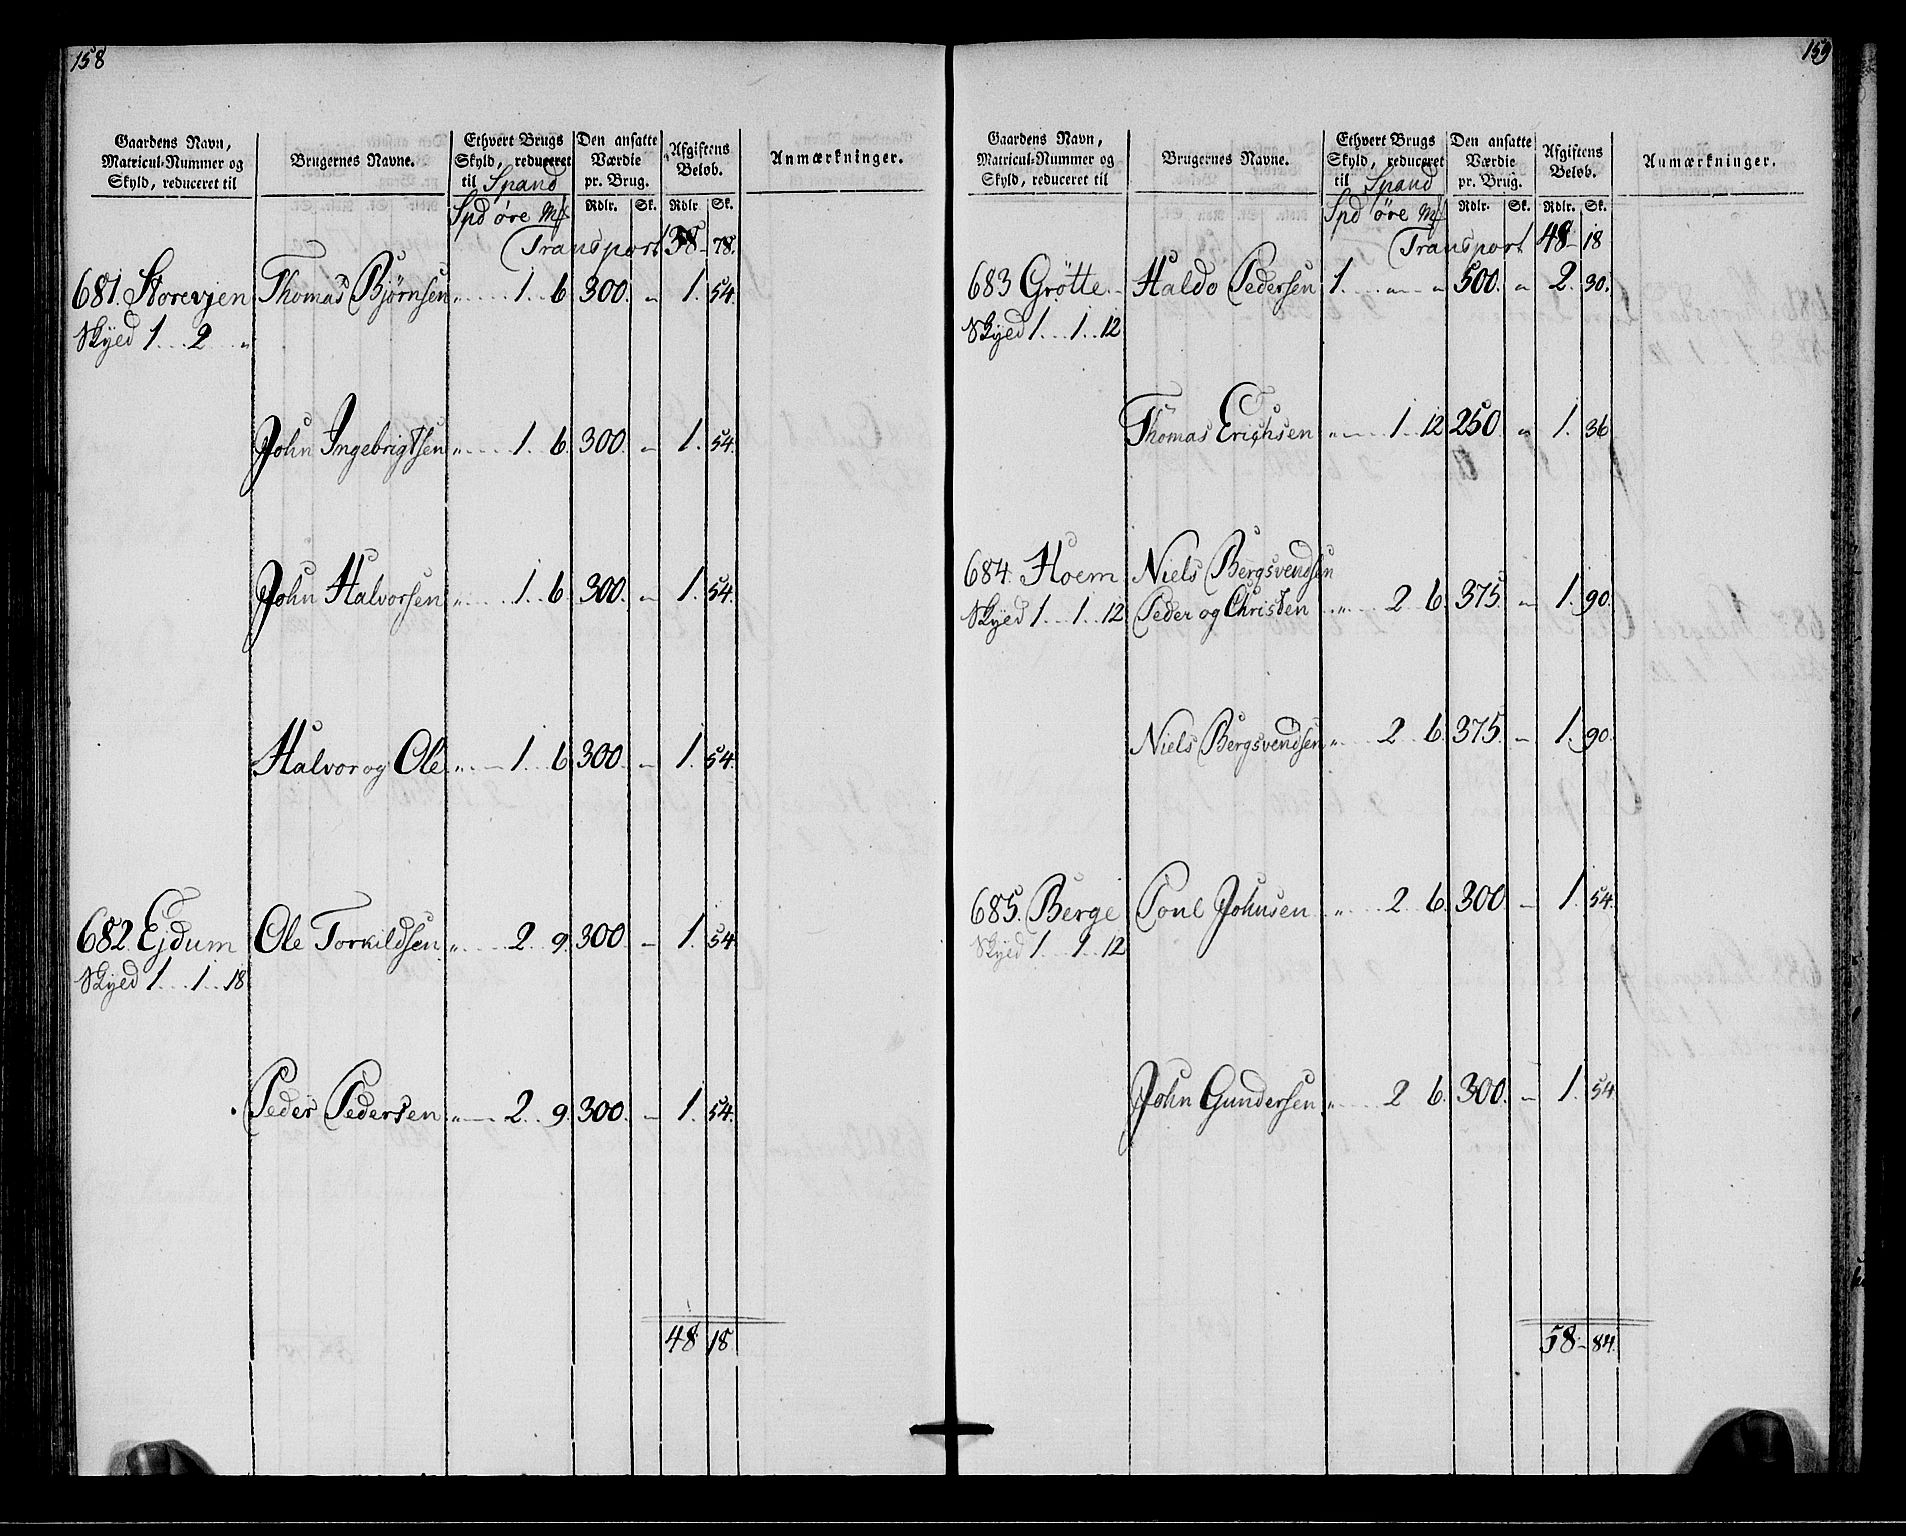 158
Gaardens Navn,
Matricul-Nummer og
Skyld, reduceret til
Brugernes Navne.
Ethvert Brugs
Skyld, reduceret
til Spand
Den ansatte
Værdie
pr. Brug.
Afgiftens
Beløb.
Anmærkninger.
Spd øre Mf Rdlr. Sk. Rdlr Sk.
Transport 38 - 78.
681. Storevjen Thomas Bjørnsen „ 1 .. 6 300. „ 1. 54.
Skyed 1 ... 2 .. „
John Ingebrigtsen „ 1. 6. 300. „ 1. 54.
John Halvorsen „ 1. 6 300. „ 1. 54.
Halvor og Ole „ 1 .. 6 300. „ 1. 54.
682. Ejdum Ole Torkildsen „ 2 .. 9. 300. „ 1. 54.
Skyed 1 ... 1 .. 18
Peder Pedersen „ 2 .. 9. 300. „ 1. 54.
48 18.
159
Gaardens Navn,
Matricul-Nummer og
Skyld, reduceret til
Brugernes Navne.
Ethvert Brugs
Skyld, reduceret
til Spand
Den ansatte
Værdie
pr. Brug.
Afgiftens
Beløb.
Anmærkninger.
Spd øre Mf Rdlr. Sk. Rdlr. Sk.
Transport 48 - 18
683 Grötte Haldo Pedersen 1. „ „ 500. „ 2. 30.
Skyed 1 ... 1 .. 12
Thomas Erichsen „ 1 .. 12 250 „ 1. 36
684. Hoem Niels Bergsvendsen
Skyed 1 ... 1 ... 12 Peder og Christen „ 2 6. 375. „ 1. 90.
Niels Bergsvendsen „ 2 .. 6. 375. „ 1. 90.
685. Berge Poul Johnsen „ 2 .. 6. 300 „ 1. 54.
Skyed 1 ... 1 .. 12
John Gundersen „ 2 6. 300. „ 1. 54.
58 - 84.